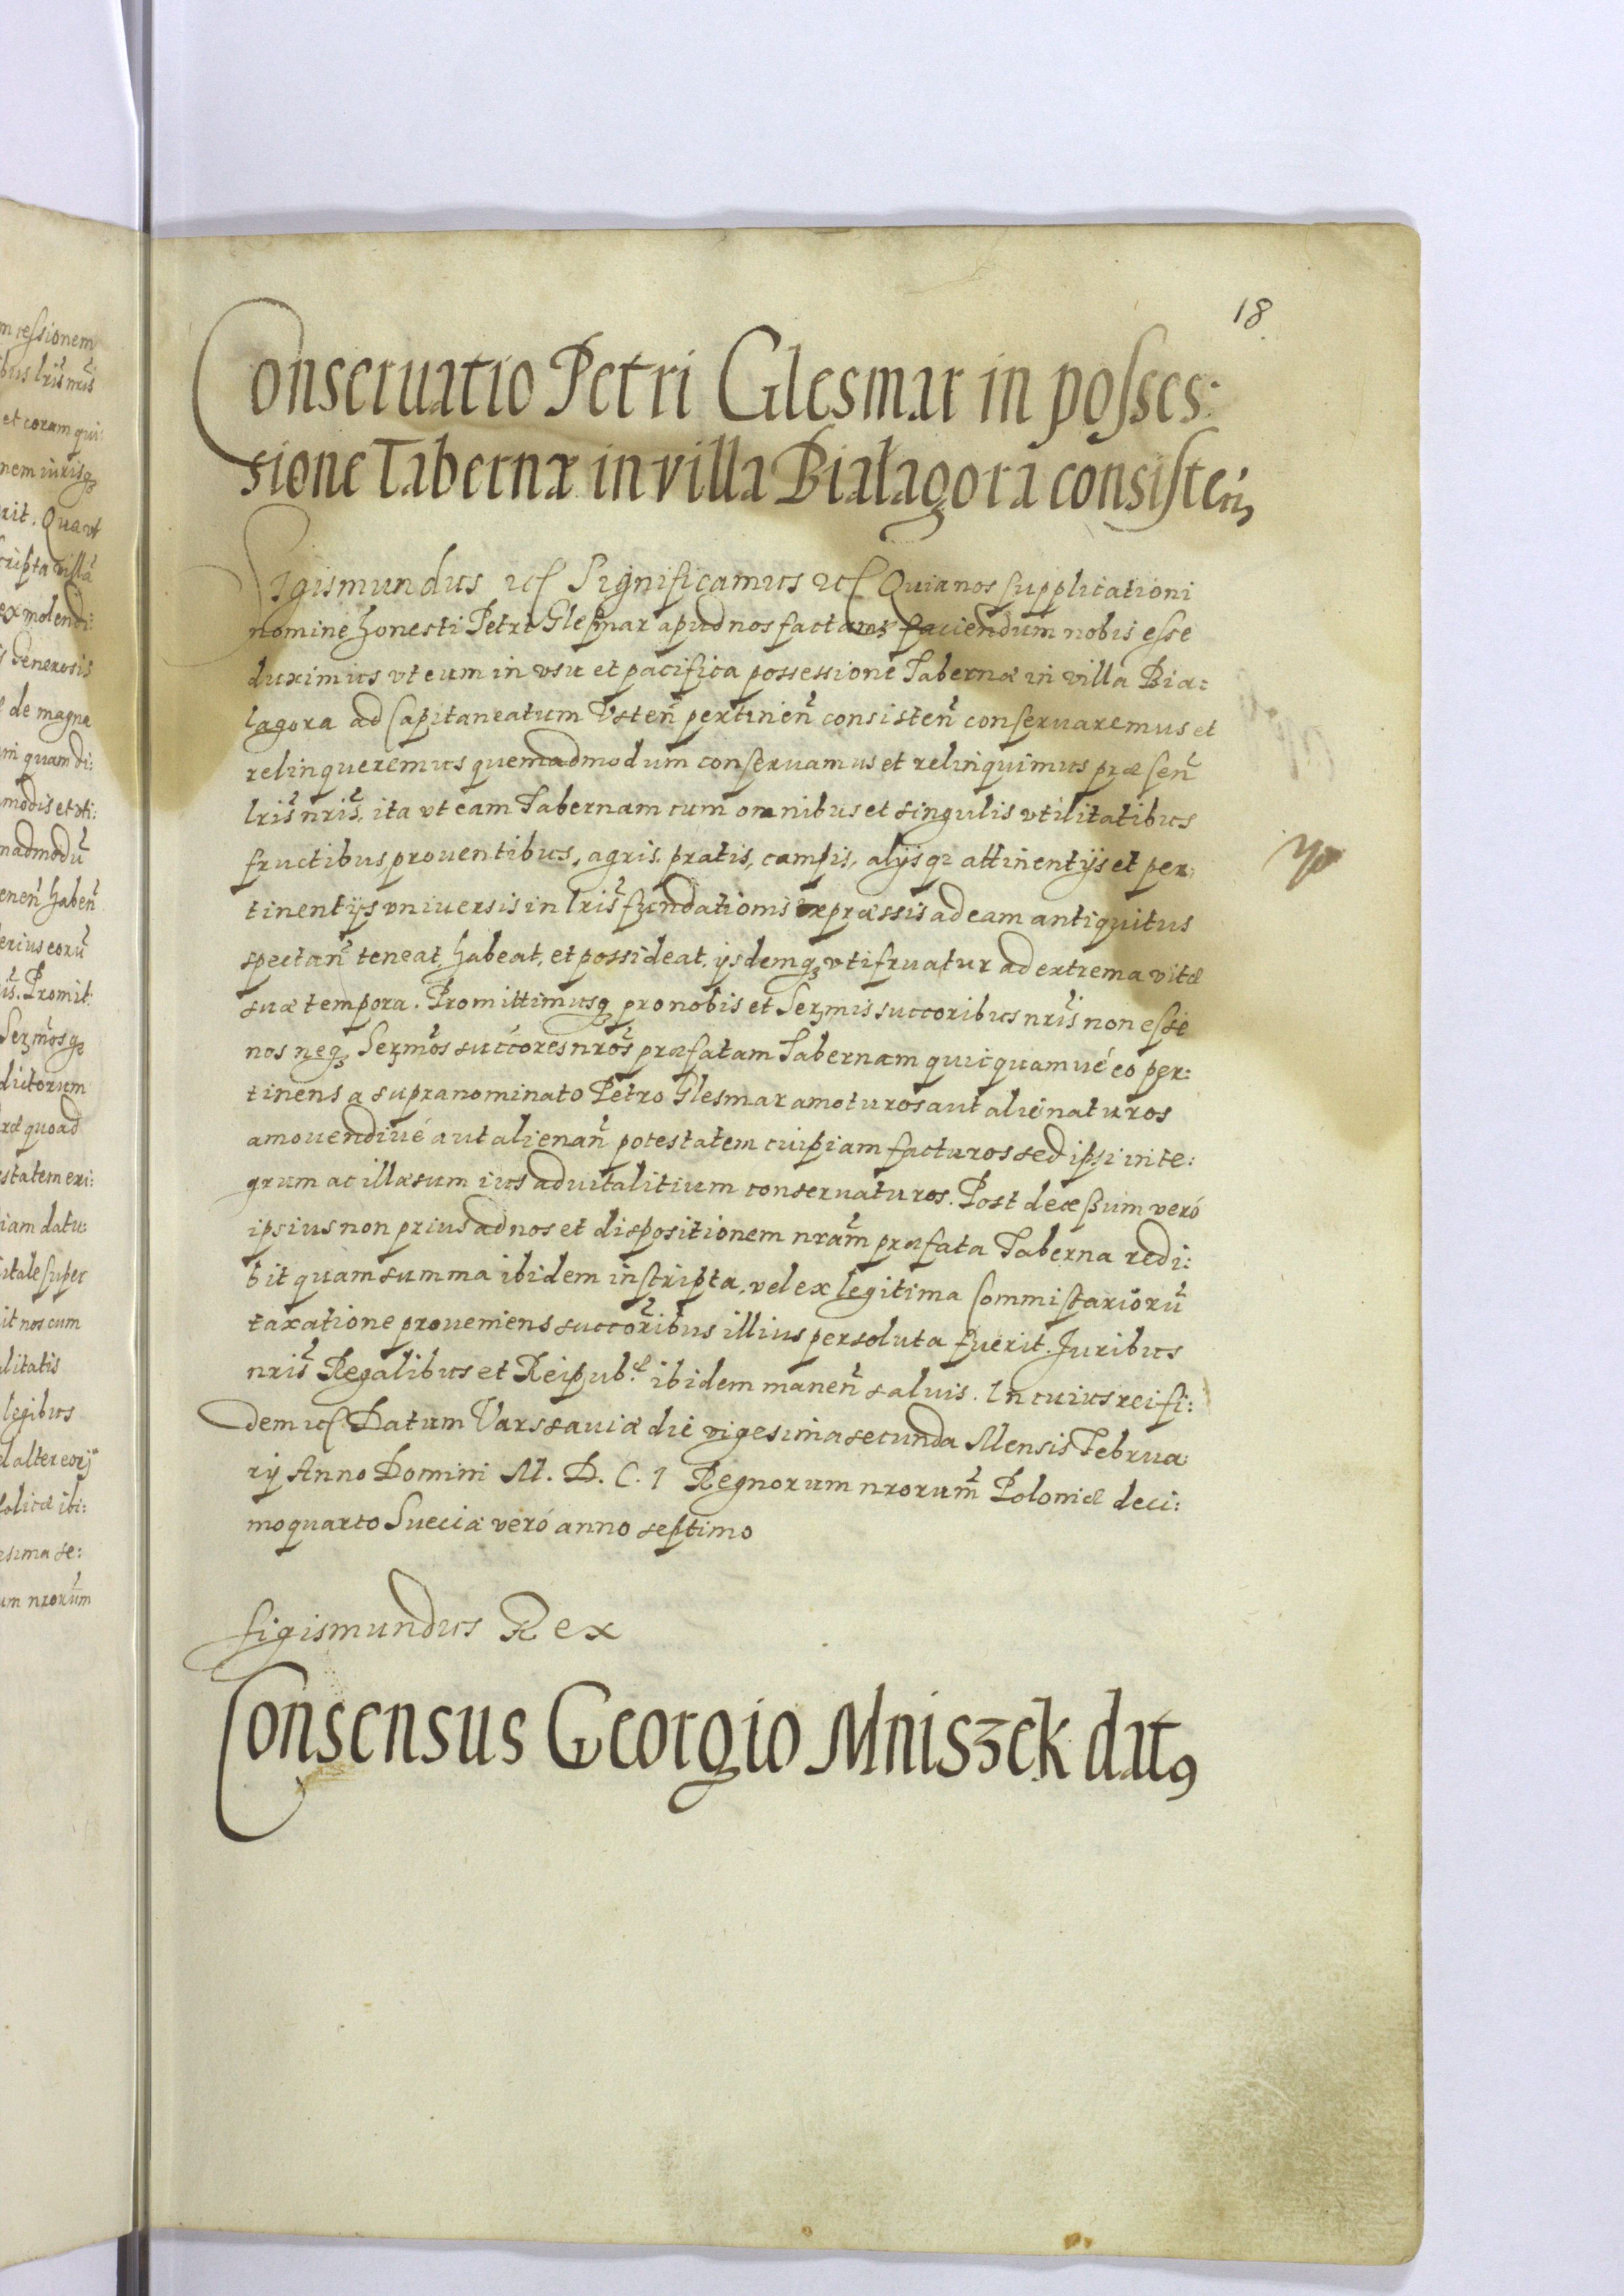 18
Conseruatio Petri Glesmar in posses:
sione Tabernæ in villa Białagora consisten̄,
Sigismundus etc Significamus etc Quia nos supplicationi
nomine honesti Petri Gleßmar apud nos factam faciendum nobis esse
duximus vt eum in vsu et pacifica possessione Tabernæ in villa Bia:
lagora ad Capitaneatum Vsten̄ pertinen̄ consisten̄ conseruaremus et
relinqueremus quemadmodum conseruamus et relinquimus præsen̄
lr̄is nr̄is, ita vt eam Tabernam cum omnibus et singulis vtilitatibus
fructibus prouentibus, agris, pratis, campis, alijsq; attinentijs et per:
tinentijs vniuersis in lr̄is fundationis expræssis ad eam antiquitus
spectan̄ teneat, habeat, et possideat, ijsdemq; vtifruatur ad extrema vitæ
suæ tempora. Promittimusq; pro nobis et Serm̄is succoribus nr̄is non esse
nos neq; Serm̄os succores nr̄os præfatam Tabernam quicquamué eo per:
tinens a supranominato Petro Glesmar amoturos aut alienaturos
amouendiué aut alienan̄ potestatem cuipiam facturos sed ipsi inte:
grum ac illæsum ius aduitalitium conseruaturos. Post decæßum veró
ipsius non prius ad nos et dispositionem nr̄am præfata Taberna redi:
bit quam summa ibidem inscripta, vel ex legitima Commissariorū
taxatione proueniens succoribus illius persoluta fuerit. Juribus
nr̄is Regalibus et Reipub: ibidem manen̄ saluis. In cuius rei fi:
dem etc Datum Varssauiæ die vigesima secunda Mensis Februa:
rij Anno Domini M. D. C. I Regnorum nrorum̄ Poloniæ deci:
moquarto Sueciæ veró anno septimo
Sigismundus Rex
Consensus Georgio Mniszek datꝰ